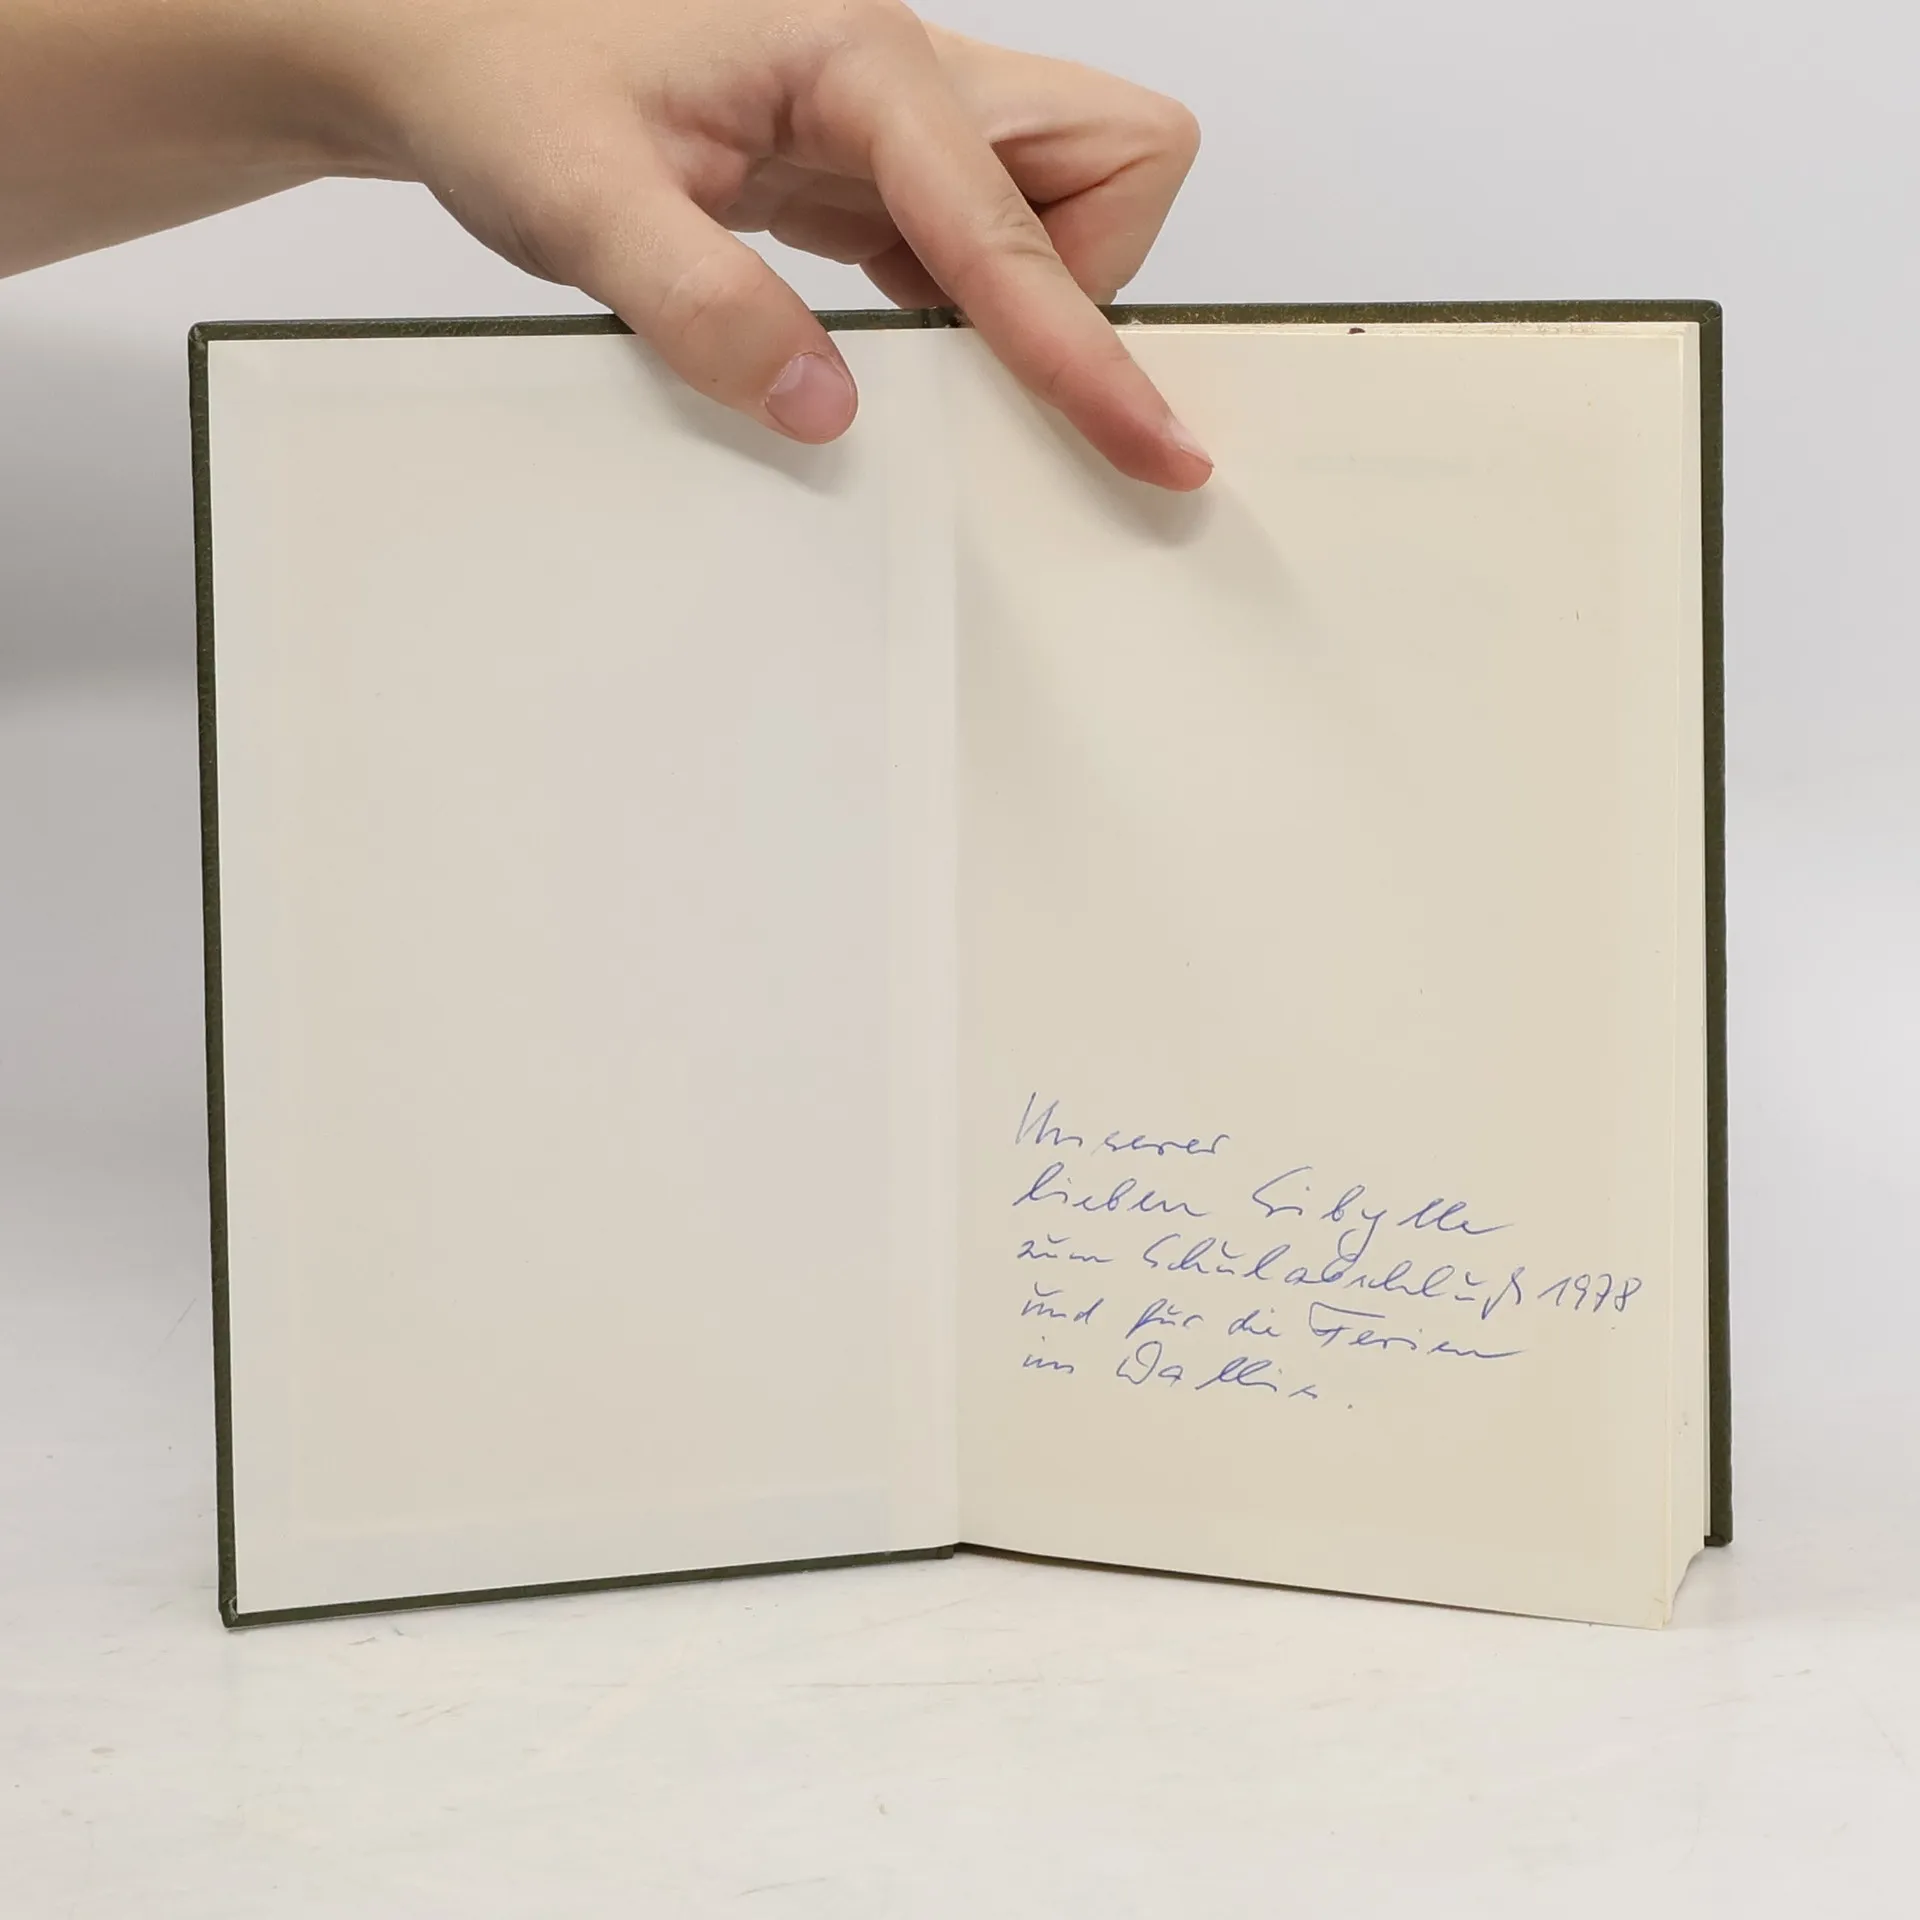 Unserer
lieben Sibylle
zum Schulabschluß 1978
und für die Ferien
im Wallis.